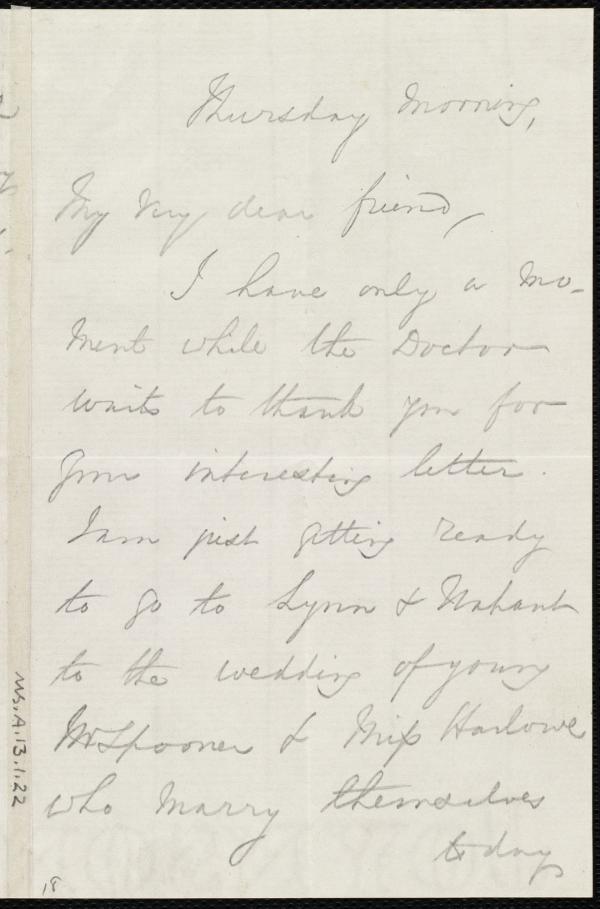 Thursday Morning,
My very dear friend,
I have only a mo-
ment while the Doctor
waits to thank you for
your interesting letter.
I am just getting ready
to go to Lynn & Nahant
to the wedding of young
Mr Spooner & Miss Harlowe
who marry themselves
today
Ms.A.13.1.22
18